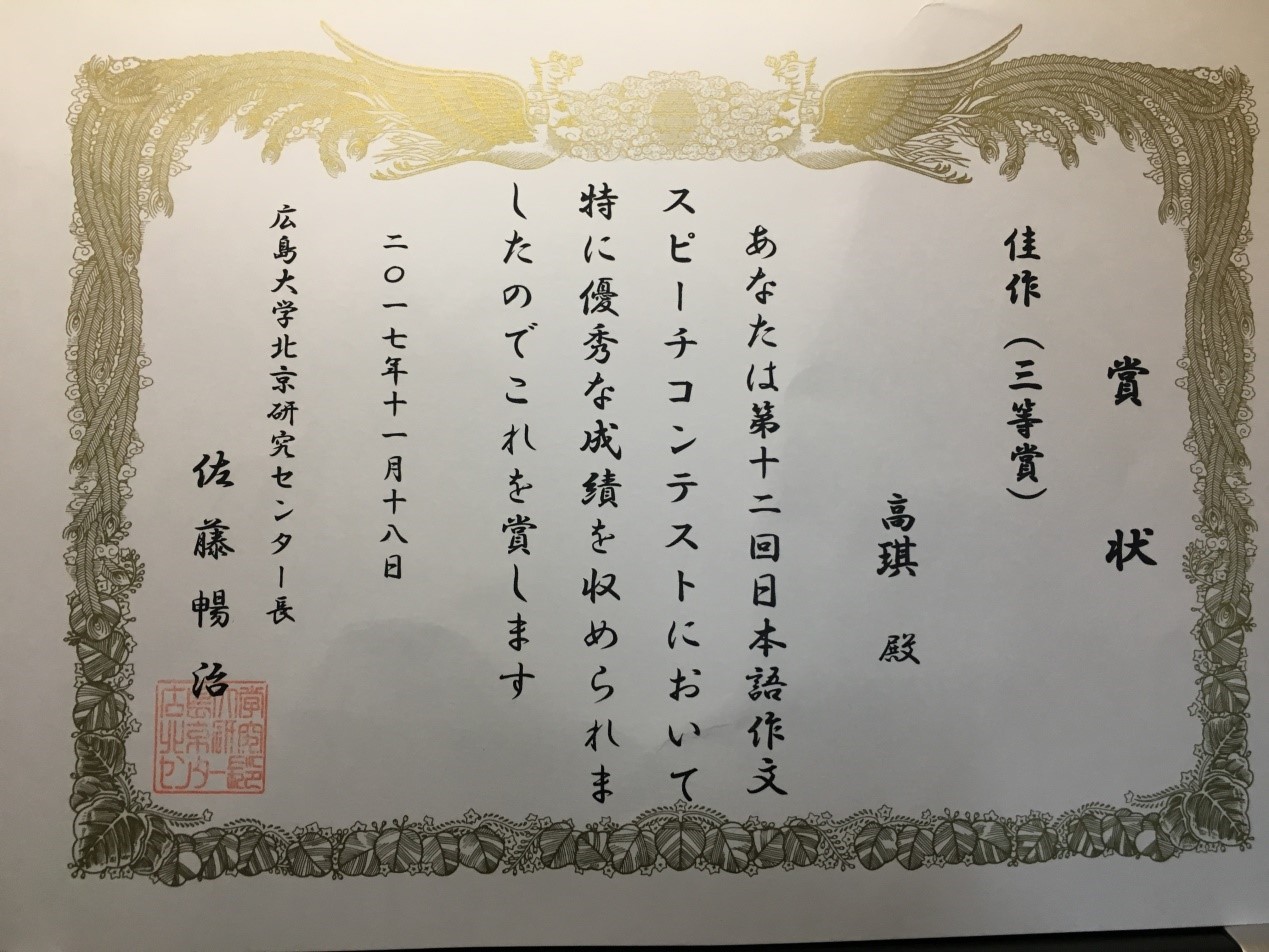 賞状
佳作（三等賞）
高琪 殿
あなたは第十二回日本語作文
スピーチコンテストにおいて
特に優秀な成績を収められま
したのでこれを賞します
二〇一七年十一月十八日
広島大学北京研究センター長
佐藤暢治